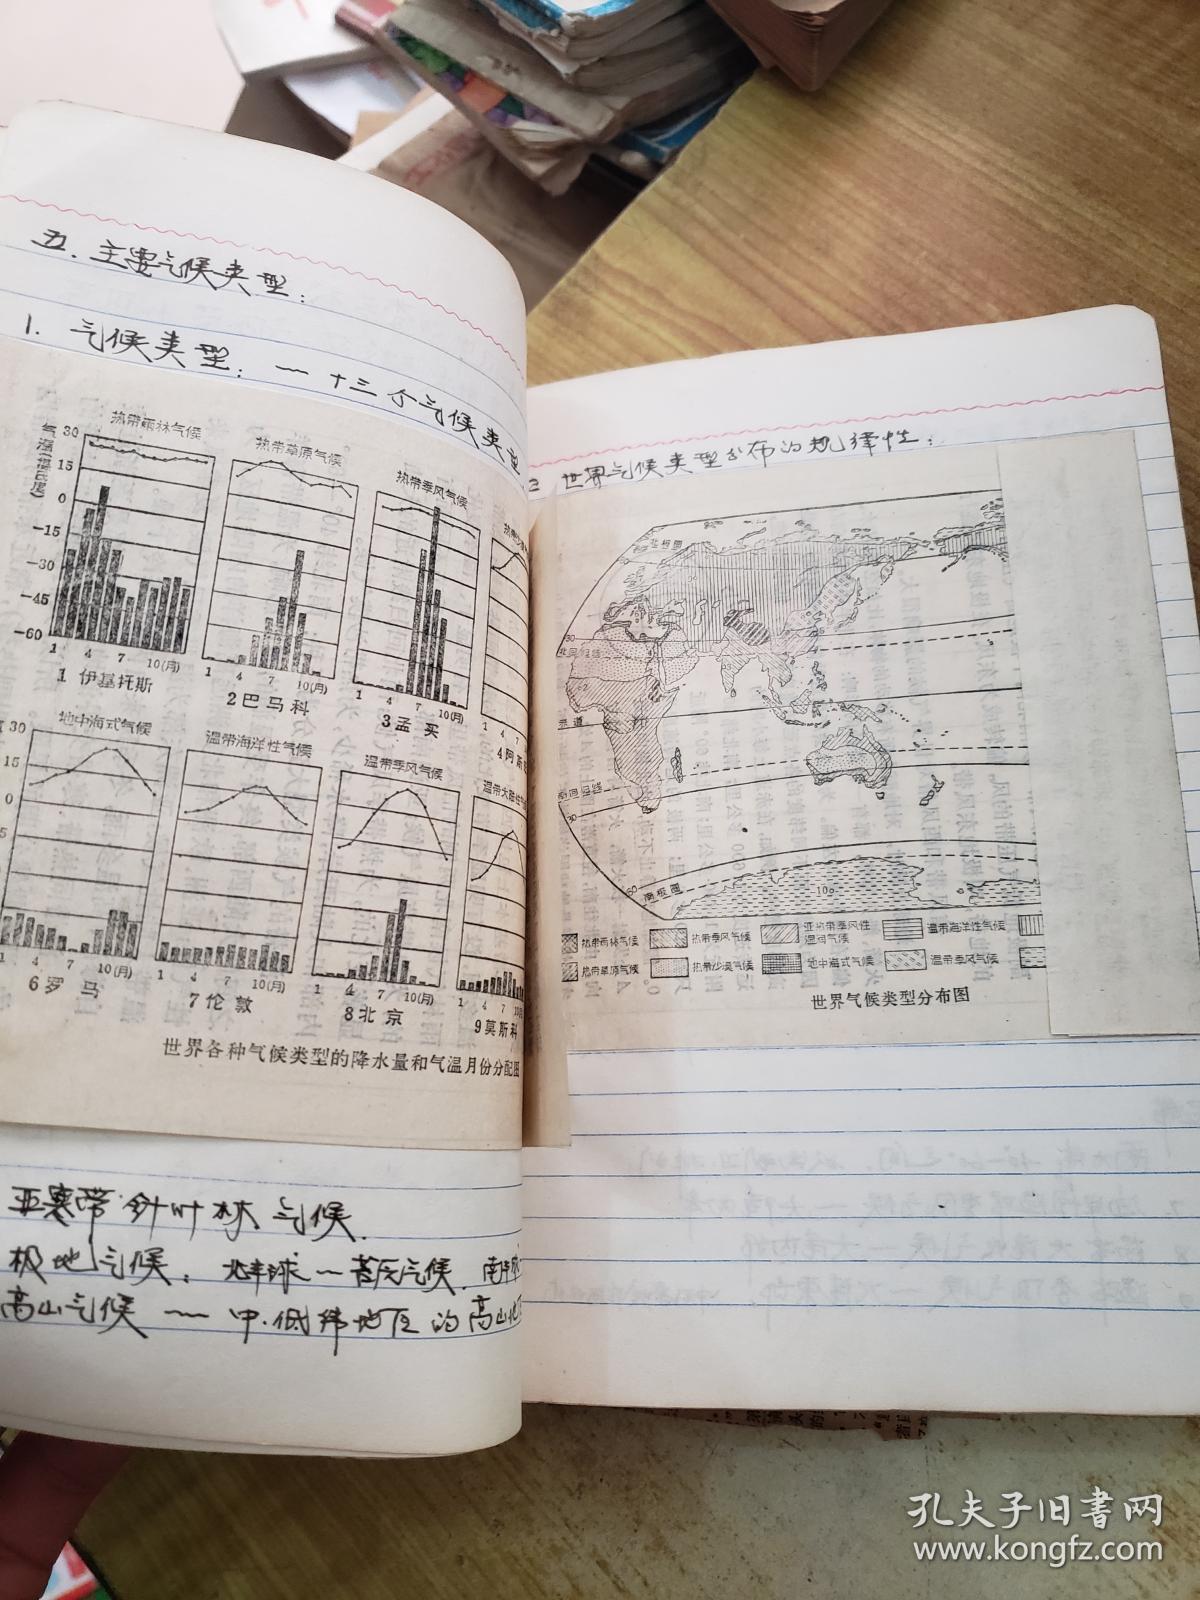 五.主要气候类型:
1.气候类型:—十三个气候类型
气温(摄氏度)
热带雨林气候
热带草原气候
热带季风气候
30
15
0
-15
-30
-45
-60
1 4 7 10(月)
1 4 7 10(月)
1 4 7 10(月)
1 伊基托斯
2 巴马科
3 孟买
4 阿斯
地中海式气候
温带海洋性气候
温带季风气候
温带大陆性气
30
15
0
1 4 7 10(月)
1 4 7 10(月)
1 4 7 10(月)
1 4 7 10
6 罗马
7 伦敦
8 北京
9 莫斯科
世界各种气候类型的降水量和气温月份分配图
亚寒带针叶林气候
极地气候:北半球—苔原气候.南半球
高山气候—中.低纬地区的高山地区
世界气候类型分布的规律性:
北极圈
30
北回归线
赤道
南回归线
30
60
南极圈
热带雨林气候
热带季风气候
亚热带季风性湿润气候
温带海洋性气候
热带草原气候
热带沙漠气候
地中海式气候
温带季风气候
世界气候类型分布图
孔夫子旧书网
www.kongfz.com